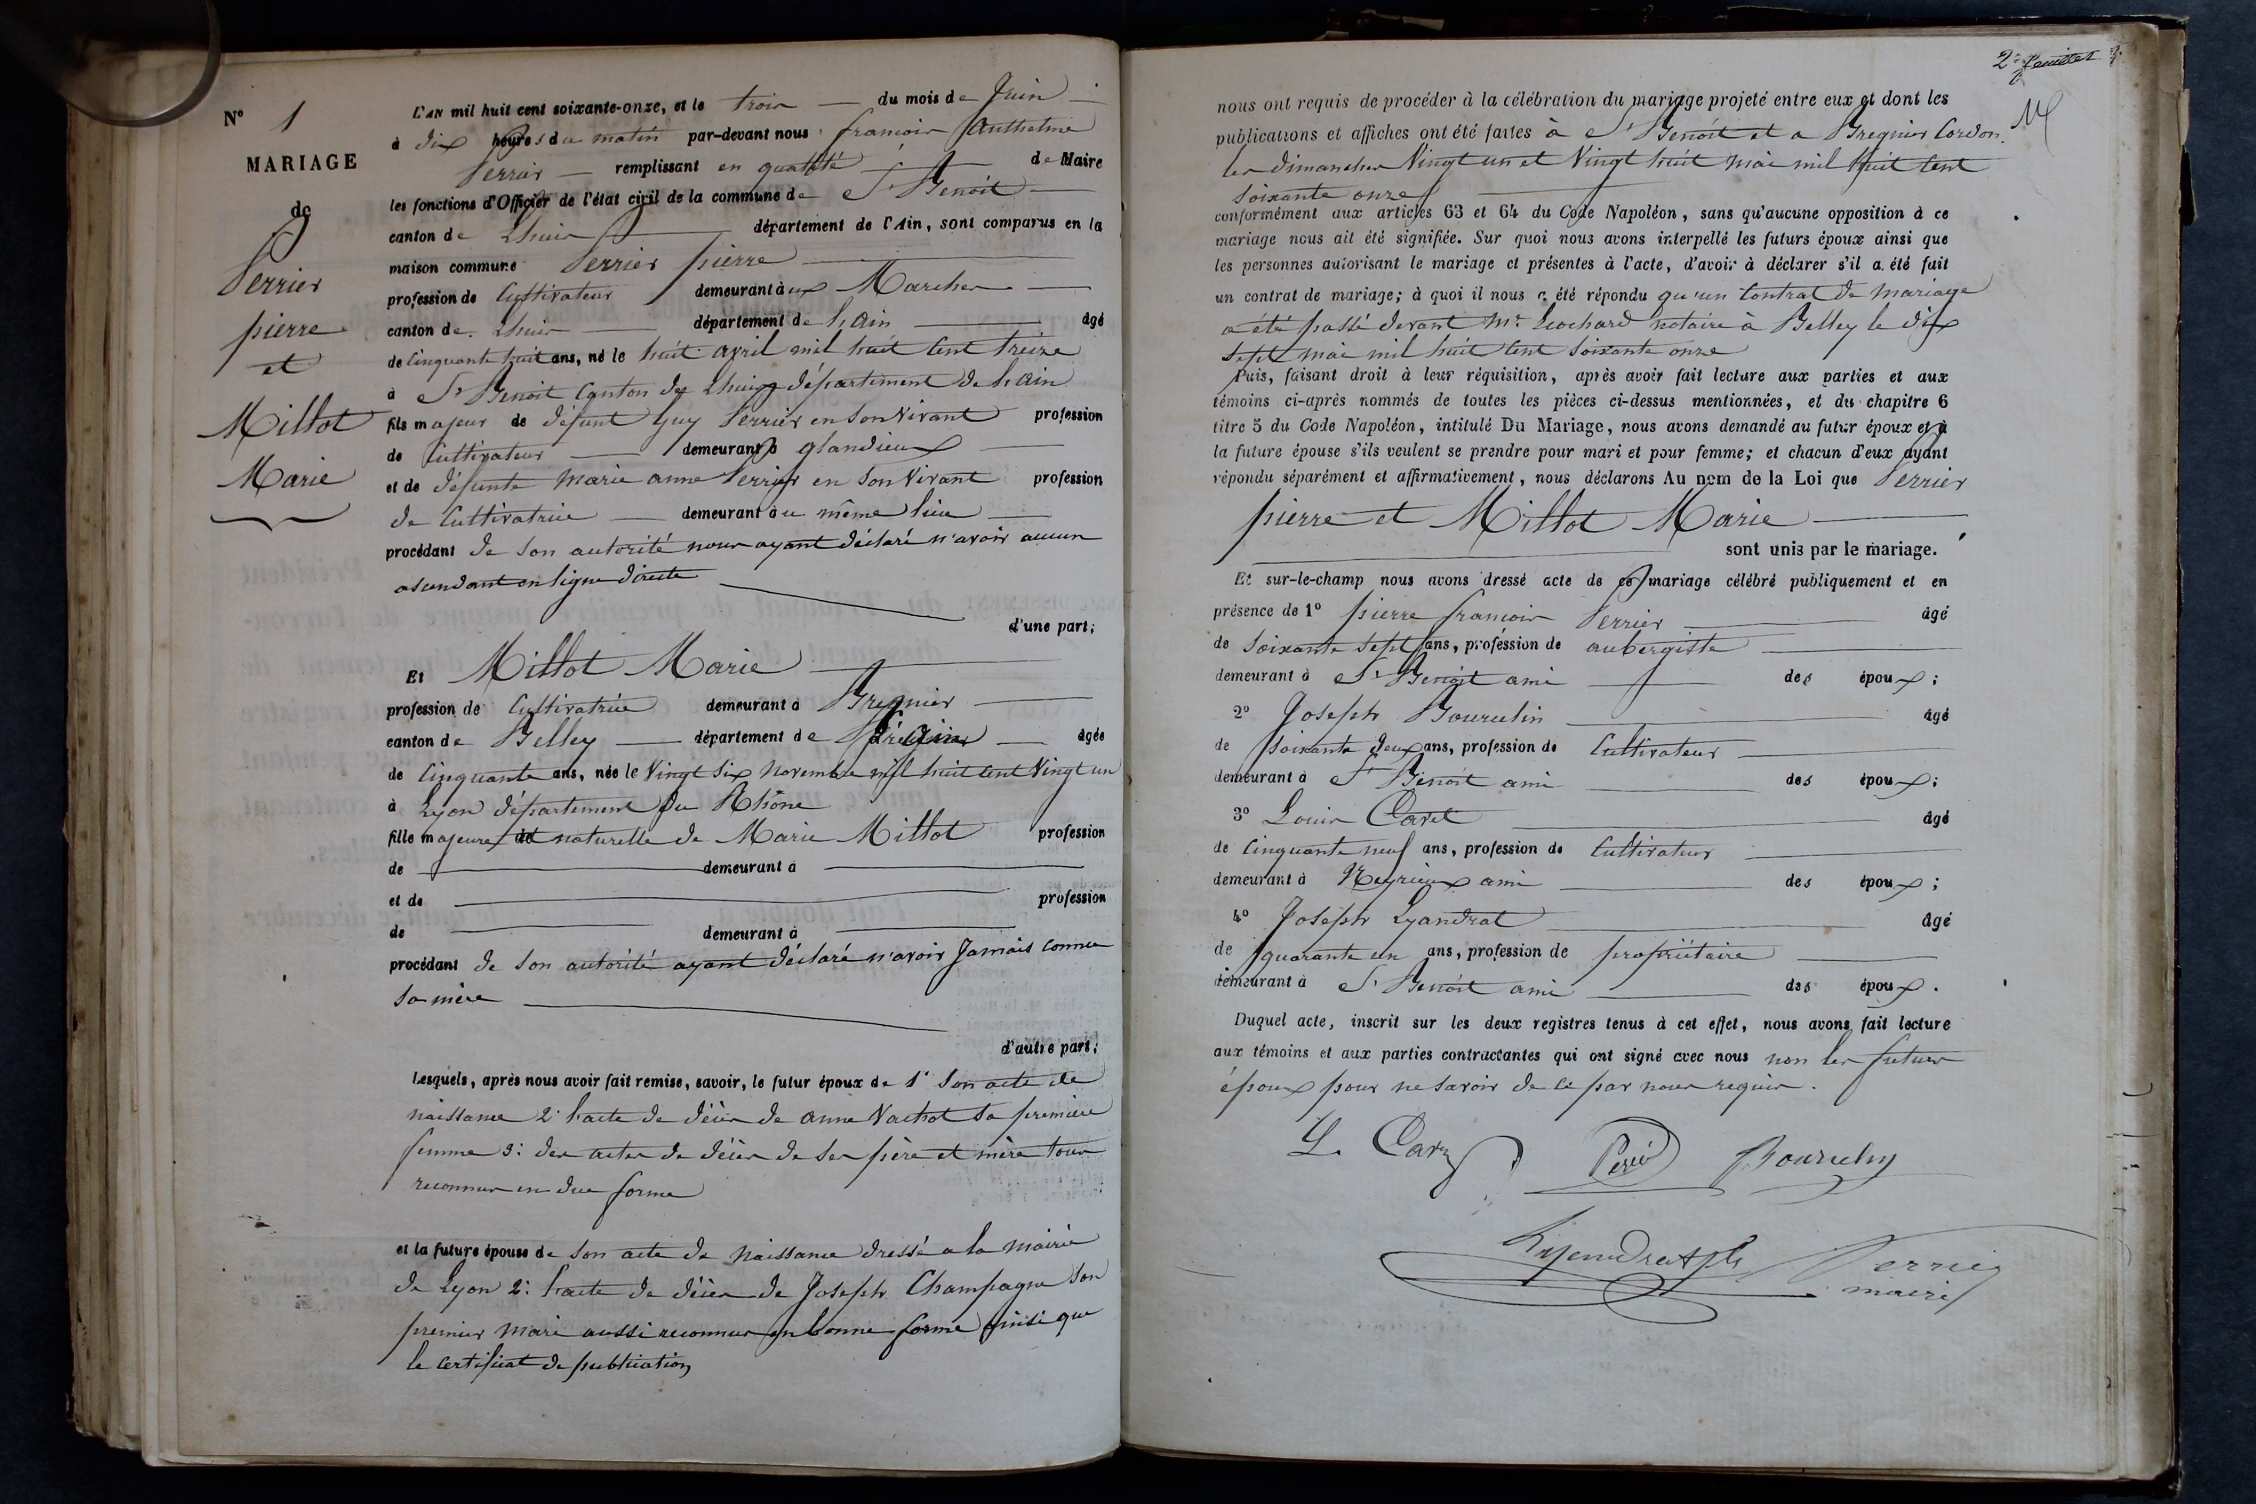 N° 1
MARIAGE
de
Perrier
pierre
et
Millot
Marie
L'AN mil huit cent soixante-onze, et le trois du mois de Juin
à dix heures du matin par-devant nous françois Anthelme
Perrier remplissant en qualité de Maire
les fonctions d'Officier de l'état civil de la commune de St Benoit
canton de Lhuis département de l'Ain, sont comparus en la
maison commune Perrier pierre
profession de Cultivateur demeurant aux Marches
canton de Lhuis département de l'ain âgé
de Cinquante huit ans, né le huit avril mil huit cent treize
à St Benoit Canton de Lhuis département de l'ain
fils majeur de défunt Guy Perrier en son vivant profession
de Cultivateur demeurant à glandieux
et de défunte Marie anne Perrier en son vivant profession
de Cultivatrice demeurant au même lieu
procédant de son autorité nous ayant déclaré n'avoir aucun
ascendant en ligne directe
d'une part;
Et Millot Marie
profession de Cultivatrice demeurant à Bregnier
canton de Belley département de l'ain âgée
de Cinquante ans, née le vingt six novembre mil huit cent vingt un
à Lyon département du Rhône
fille majeure et naturelle de Marie Millot profession
de demeurant à
et de profession
de demeurant à
procédant de son autorité ayant déclaré n'avoir Jamais connu
sa mère
d'autre part;
Lesquels, après nous avoir fait remise, savoir, le futur époux de 1° son acte de
naissance 2° l'acte de décès de anne Vachot sa première
femme 3° des actes de décès de ses père et mère tous
reconnus en due forme
et la future épouse de son acte de naissance dressé a la mairie
de Lyon 2° l'acte de décès de Joseph Champagne son
premier mari aussi reconnus en bonne forme ainsi que
le certificat de publication
2e feuillet
nous ont requis de procéder à la célébration du mariage projeté entre eux et dont les
publications et affiches ont été faites à St Benoit et a Bregnier Cordon
les dimanches vingt un et vingt huit mai mil huit cent
soixante onze
conformément aux articles 63 et 64 du Code Napoléon, sans qu'aucune opposition à ce
mariage nous ait été signifiée. Sur quoi nous avons interpellé les futurs époux ainsi que
les personnes autorisant le mariage et présentes à l'acte, d'avoir à déclarer s'il a été fait
un contrat de mariage; à quoi il nous a été répondu qu'un Contrat de mariage
a été passé devant Mr Lrochard notaire à Belley le dix
sept mai mil huit cent soixante onze
Puis, faisant droit à leur réquisition, après avoir fait lecture aux parties et aux
témoins ci-après nommés de toutes les pièces ci-dessus mentionnées, et du chapitre 6
titre 5 du Code Napoléon, intitulé Du Mariage, nous avons demandé au futur époux et à
la future épouse s'ils veulent se prendre pour mari et pour femme; et chacun d'eux ayant
répondu séparément et affirmativement, nous déclarons Au nom de la Loi que Perrier
pierre et Millot Marie
sont unis par le mariage.
Et sur-le-champ nous avons dressé acte de ce mariage célébré publiquement et en
présence de 1° pierre françois Perrier âgé
de soixante sept ans, profession de aubergiste
demeurant à St Benoit ami des époux;
2° Joseph Bourulin âgé
de soixante deux ans, profession de Cultivateur
demeurant à St Benoit ami des époux;
3° Louis Cavet âgé
de cinquante neuf ans, profession de Cultivateur
demeurant à Meyrieux ami des époux;
4° Joseph Lyandrat âgé
de quarante un ans, profession de propriétaire
demeurant à St Benoit ami des époux.
Duquel acte, inscrit sur les deux registres tenus à cet effet, nous avons fait lecture
aux témoins et aux parties contractantes qui ont signé avec nous non les futurs
époux pour ne savoir de ce par nous requis.
Perrier
maire